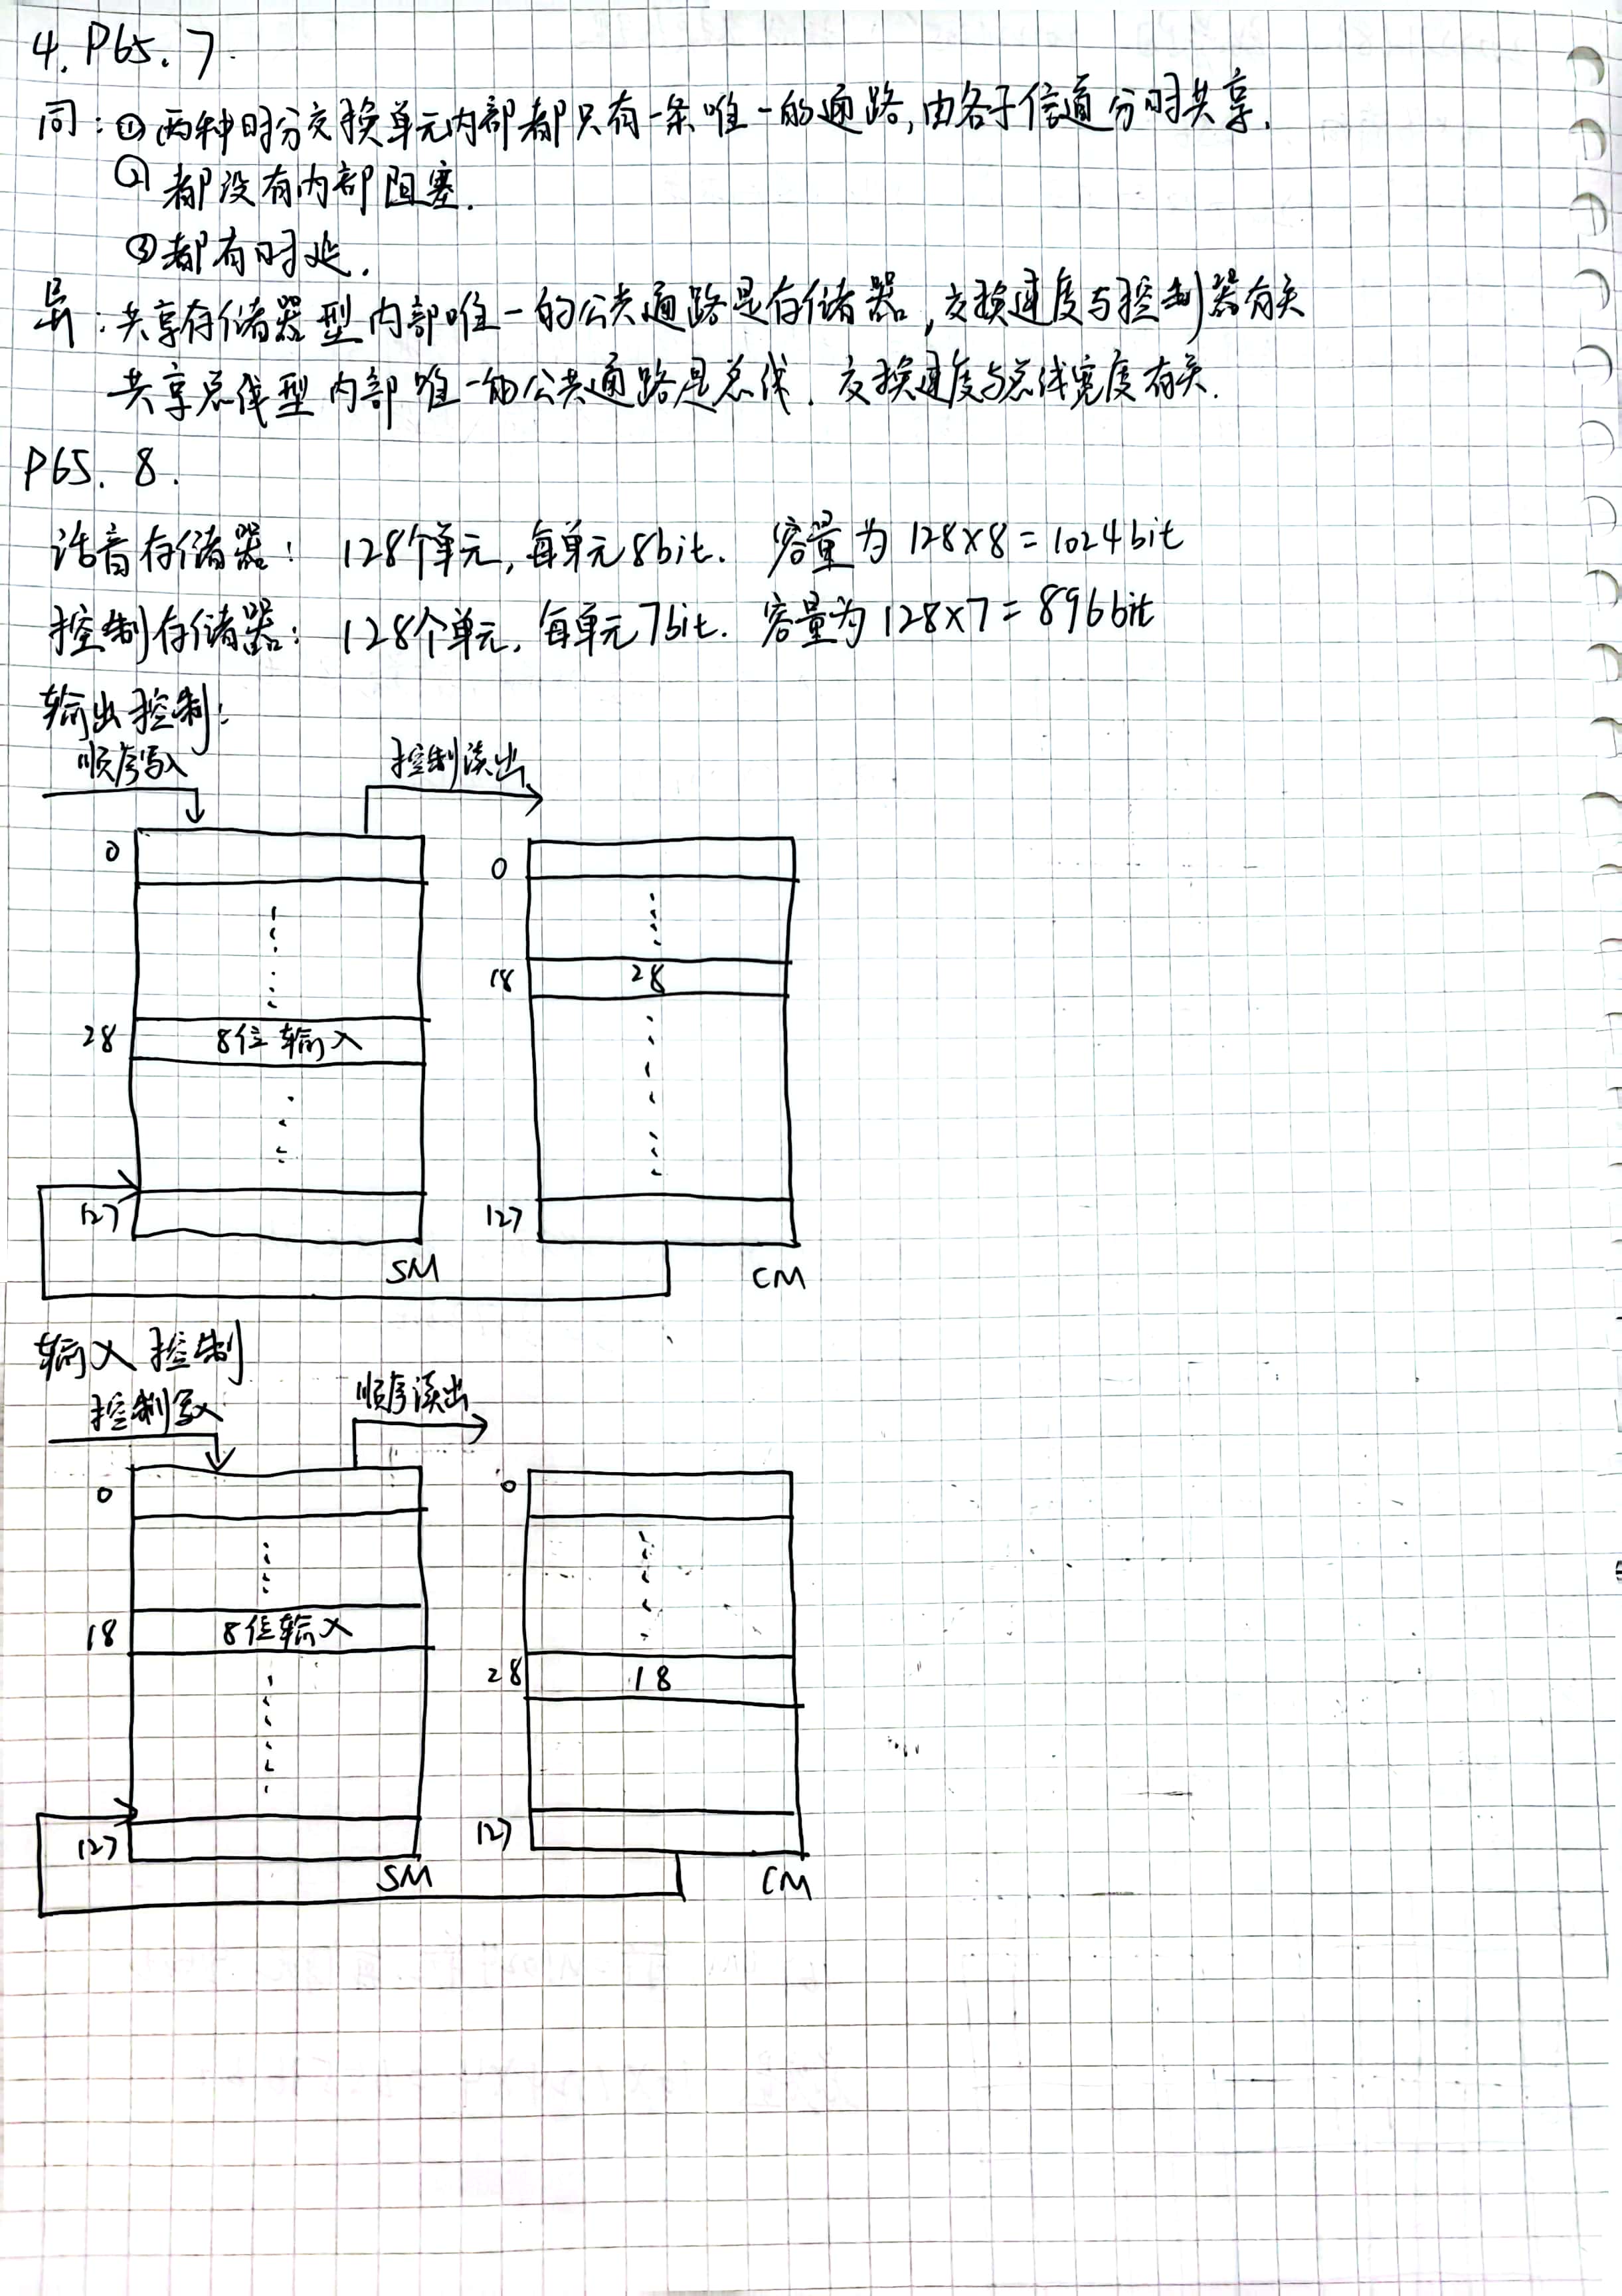 4. P65. 7.
同：① 两种时分交换单元内部都只有一条唯一的通路，由各子信道分时共享.
② 都没有内部阻塞.
③ 都有时延.
异：共享存储器型内部唯一的公共通路是存储器，交换速度与控制器有关
共享总线型内部唯一的公共通路是总线. 交换速度与总线宽度有关.
P65. 8.
话音存储器： 128个单元, 每单元8bit. 容量为 128×8=1024bit
控制存储器： 128个单元, 每单元7bit. 容量为 128×7=896bit
输出控制：
顺序写入 控制读出
0 0
18 28
28 8位输入
127 127
SM CM
输入控制
控制写入 顺序读出
0 0
18 8位输入
28 18
127 127
SM CM